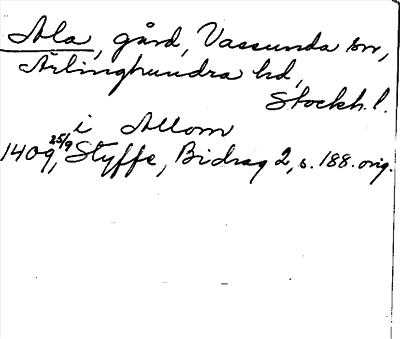 Ala, gård, Vassunda sn,
Ärlinghundra hd,
Stockh. l.
i Allom
1409 25/9, Styffe, Bidrag 2, s. 188. orig.